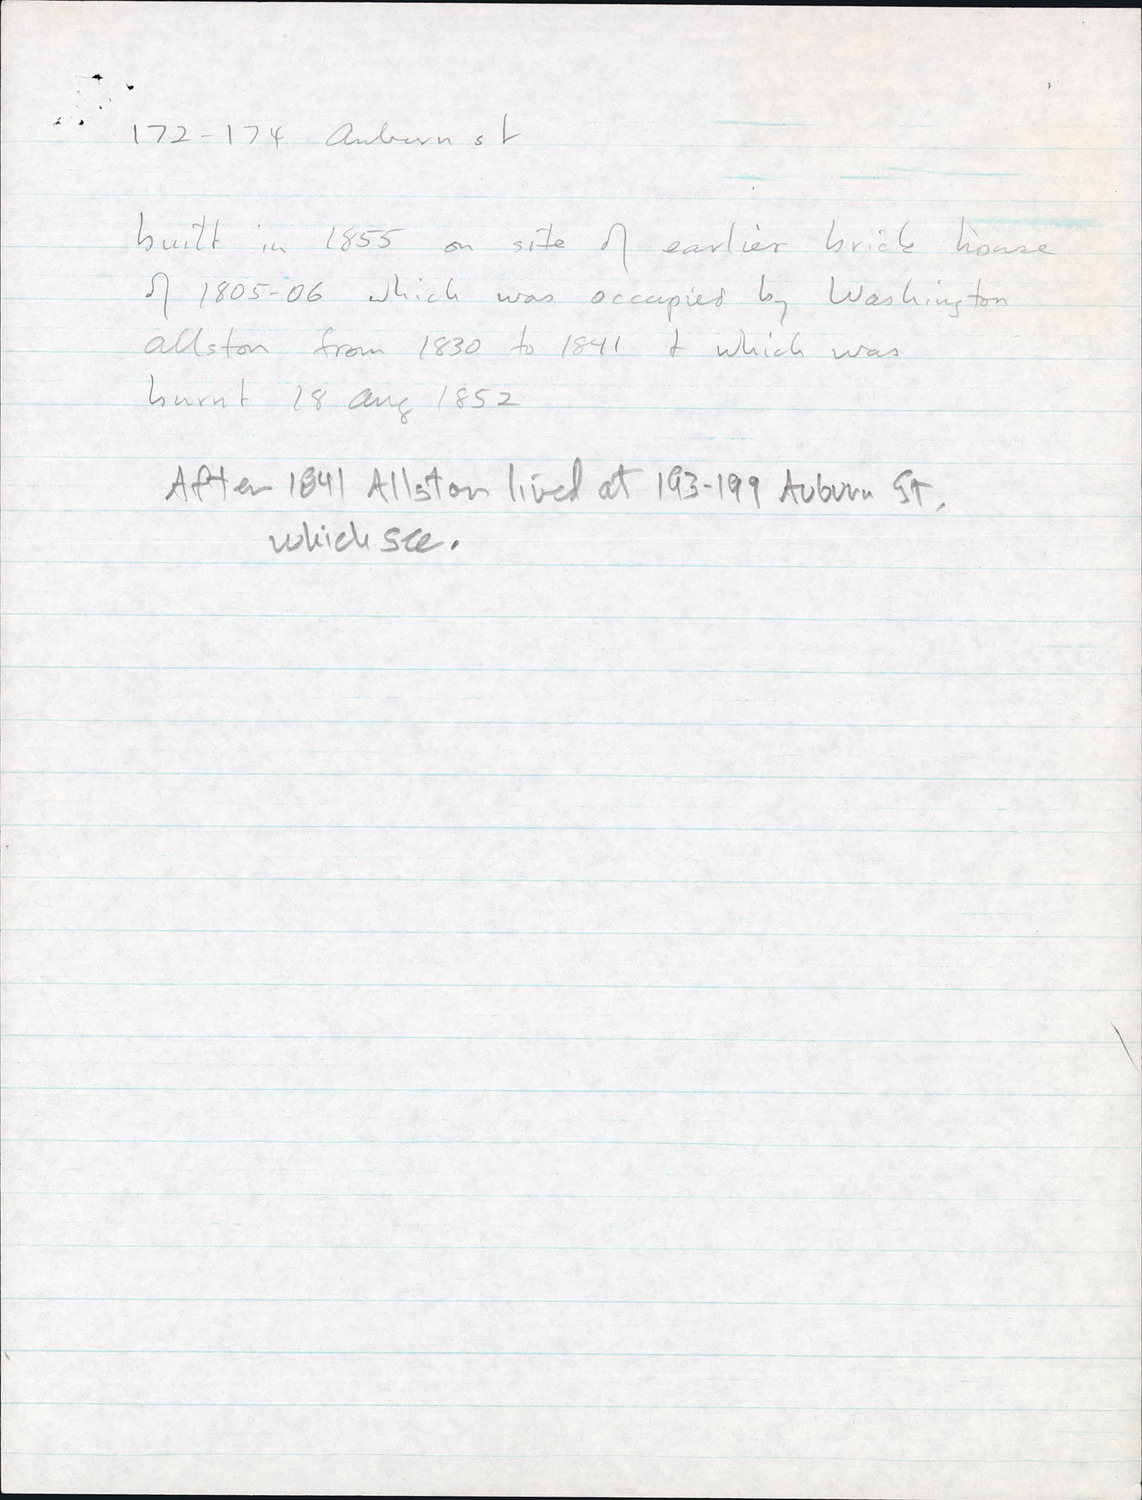 172-174 Auburn st
built in 1855 on site of earlier brick house
of 1805-06 which was occupied by Washington
allston from 1830 to 1841 & which was
burnt 18 aug 1852
After 1841 Allston lived at 193-199 Auburn St.,
which see.